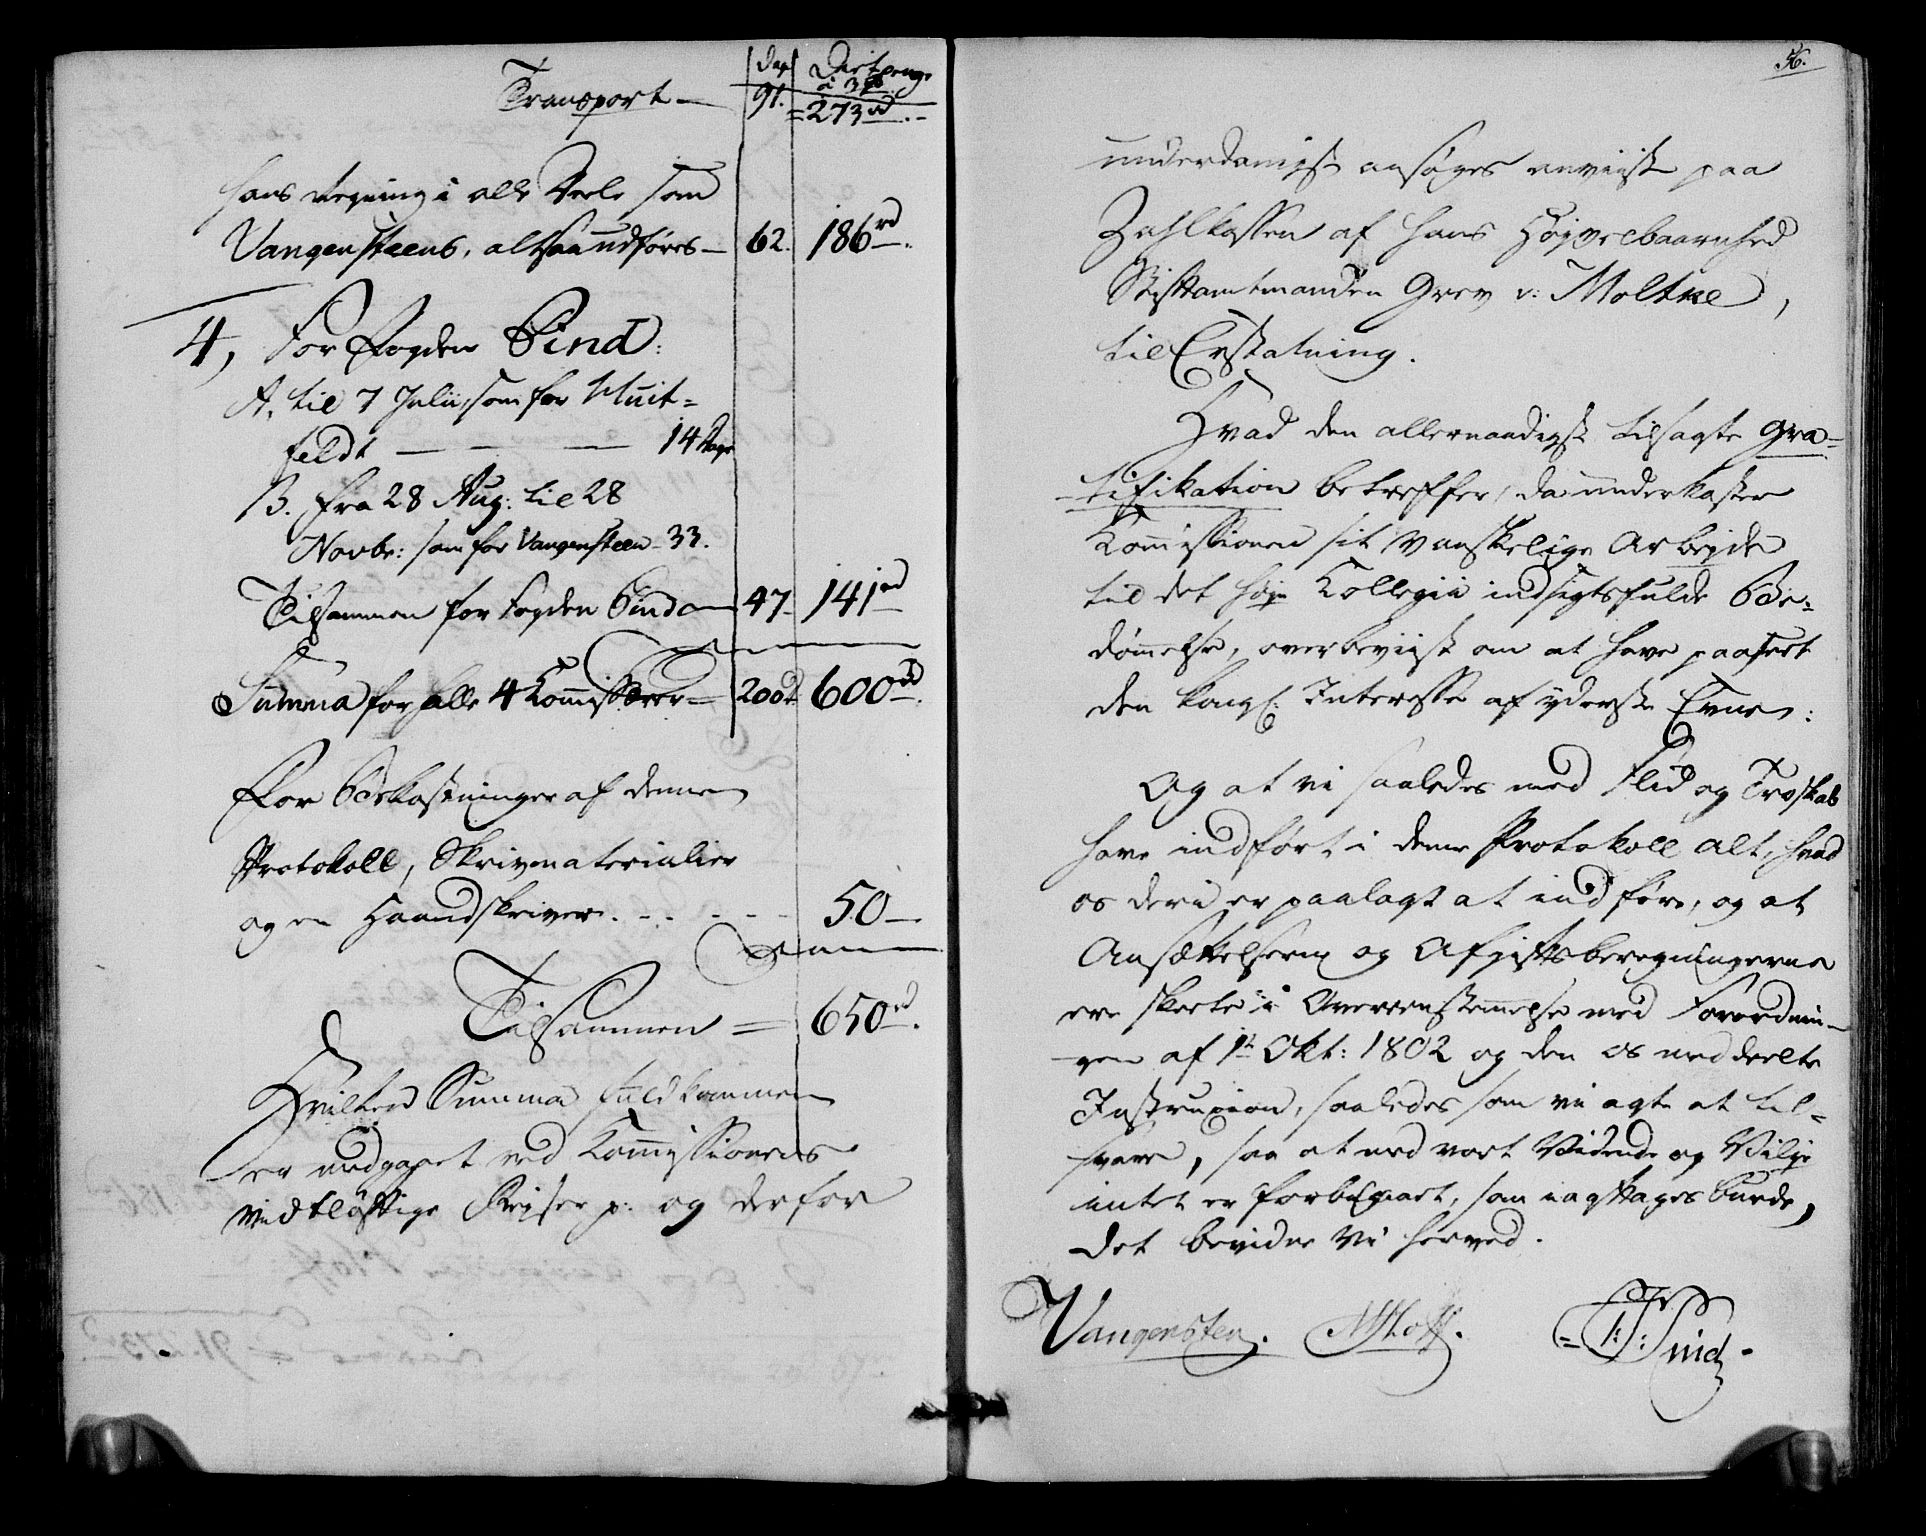 Dage Diætpenge
à 3 rd
Transport — 91. = 273 rd. -
hans Regning i alle Deele som
Vangensteens, altsaa udføres — 62. 186 rd.
4, For Fogden Sind:
A. til 7 Julii, som for Huit=
feldt — — — 14 Dage
B. fra 28 Aug: til 28
Novbr: som for Vangensteen - 33.
Tilsammen for Fogden Sind — 47 - 141 rd
Summa for alle 4 Kommissærer = 200 d 600 rd.
For Bekostninger af denne
Protokoll, Skrivematerialier
og en Haandskriver. - - - - 50 —
Tilsammen = 650 rd.
Hvilken Summa fuldkommen
er medgaaet ved Kommissionens
vidtløftige Rejser p: og derfor
56.
underdanigst ansøges anviist paa
Zahlkassen af Hans Højvelbaarnhed
Stiftamtmanden Grev v: Moltke,
til Erstatning.
Hvad den allernaadigst tilsagte Gra-
tifikation betreffer, da underkaster
Kommissionen sit vanskelige Arbejde
til det høje Kollegii indsigtsfulde Be=
dømmelse, overbeviist om at have paaseet
den kongl: Interesse af yderste Evne:
Og at vi saaledes med Flid og Troskab
have indført i denne Protokoll alt, hvad
os deri er paalagt at indføre, og at
Ansættelserne og Afgiftsberegningerne
ere skeete i Overeensstemmelse med Forordnin-
gen af 1te Okt: 1802 og den os meddeelte
Instruxion, saaledes som vi agte at til=
svare, saa at med vort Vidende og Vilje
intet er forbigaaet, som iagttages burde,
det bevidne vi herved.
Vangensten. NHoff. Sind.